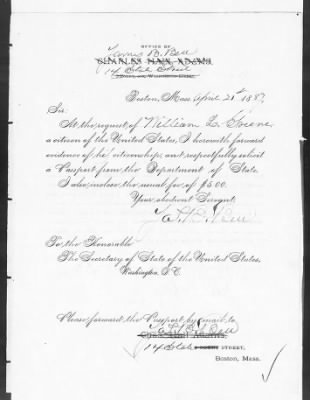 OFFICE OF
James B. Bell
CHARLES HALL ADAMS,
14 State Street
Boston, Mass. April 21st 1887
Sir:
At the request of William L. Greene
a citizen of the United States, I herewith forward
evidence of his citizenship, and respectfully solicit
a Passport from the Department of State.
I also inclose the usual fee of $5.00.
Your obedient Servant,
To the Honorable
The Secretary of State of the United States,
Washington, D.C.
Please forward the Passport by mail to
14 State STREET,
Boston, Mass.